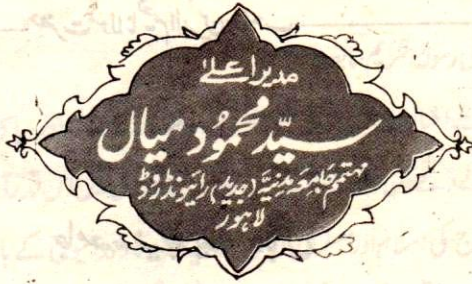 مدیر اعلےٰ
سیّد محمُود میاں
مہتمم جَامِعَہ مَدنیَہ (جدید) رائیونڈ روڈ
لاہور